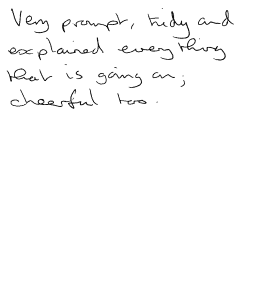 Very prompt, tidy and
explained everything
that is going on;
cheerful too.